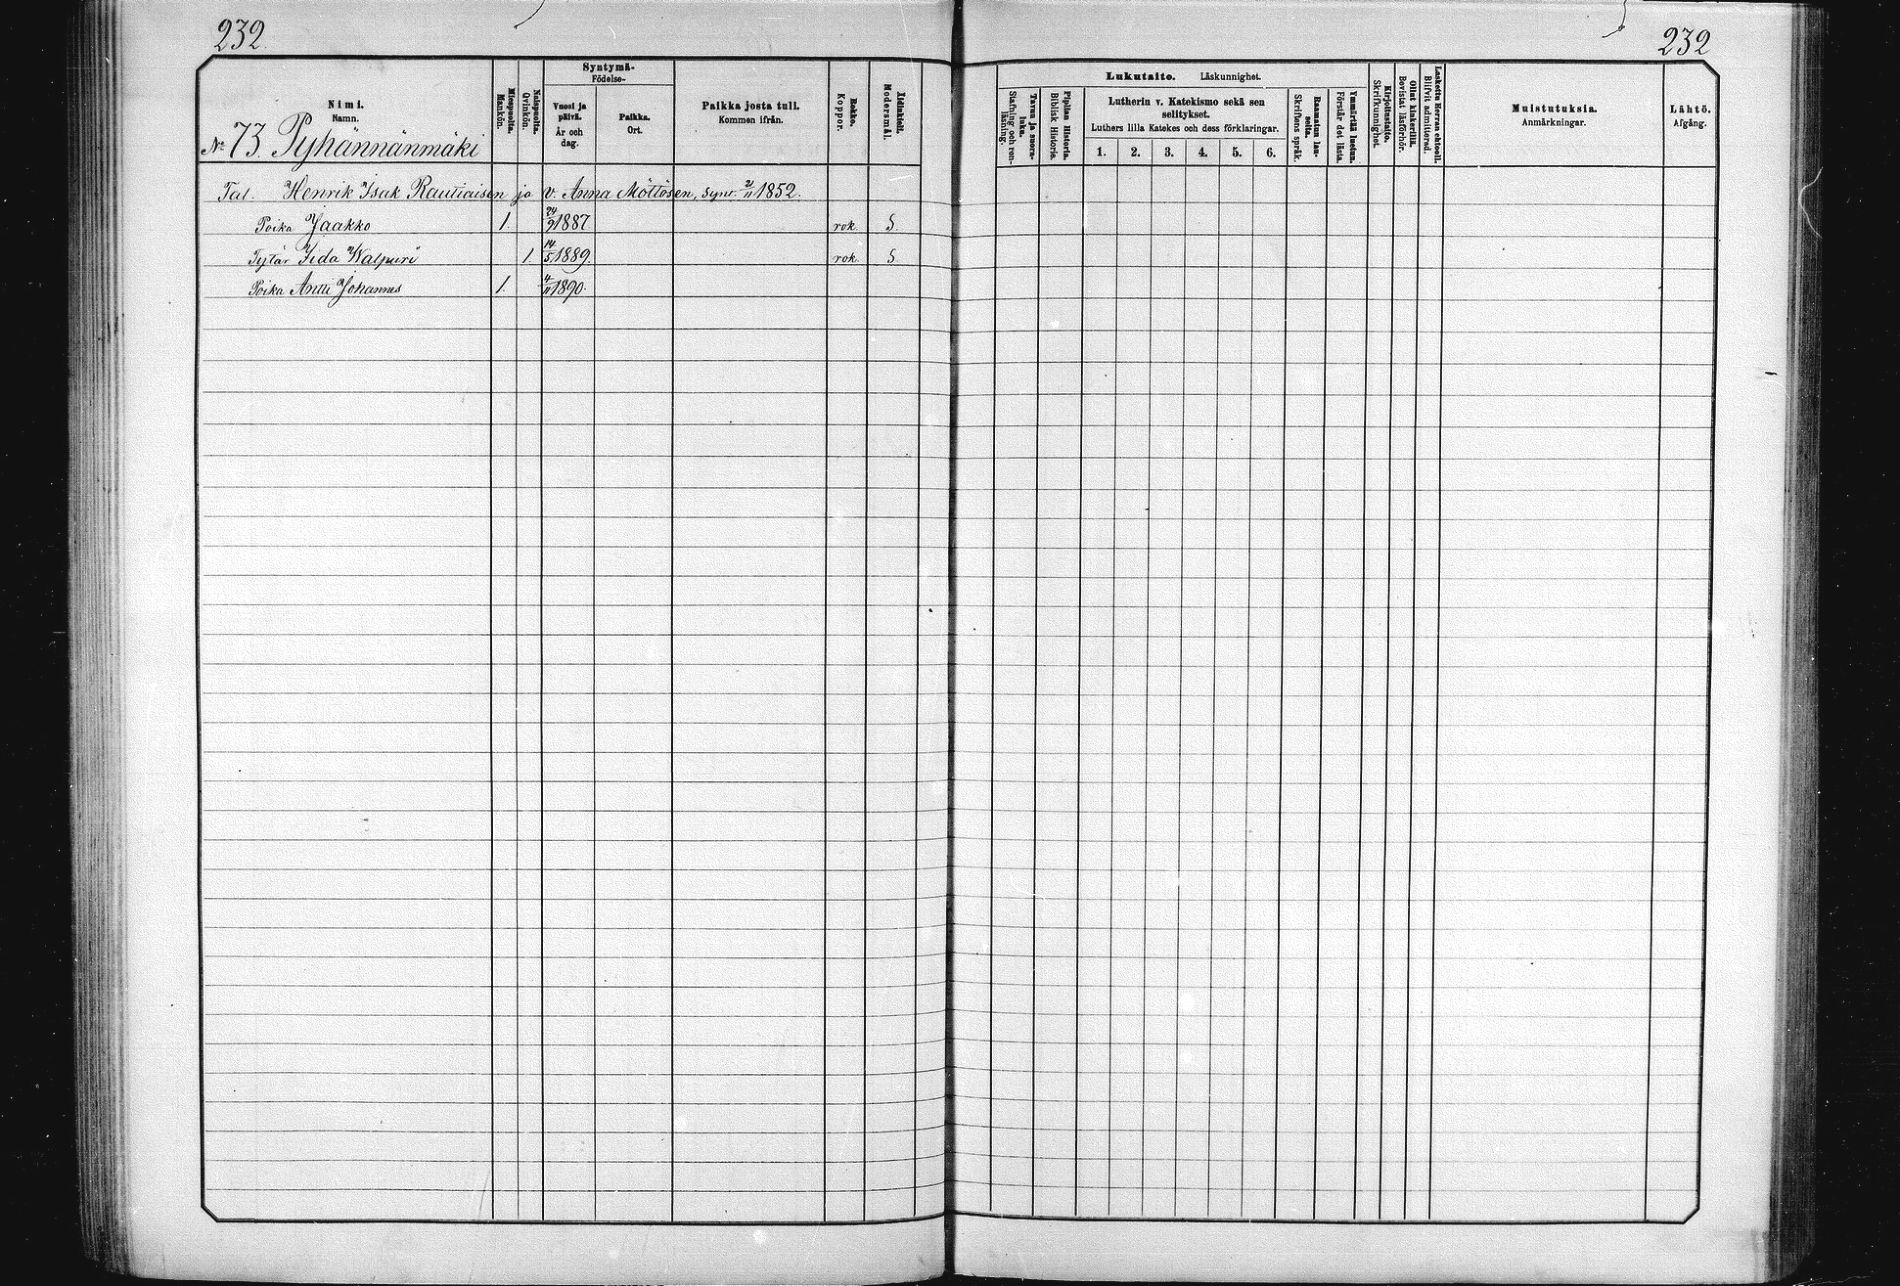 232.
232
Syntymä-
Födelse-
Nimi.
Namn.
Miespuolta.
Mankön.
Naispuolta.
Qvinkön.
Vuosi ja päivä.
År och dag.
Paikka.
Ort.
Paikka josta tuli.
Kommen ifrån.
Rokko.
Koppor.
Äidinkieli.
Modersmål.
№ 73. Pyhännänmäki
Tal. Henrik Isak Rautiaisen ja v. Anna Möttösen, synt. 2/11 1852.
Poika Jaakko 1. 24/9 1887 rok. S.
Tytär Iida Walpuri 1. 14/5 1889. rok. S.
Poika Antti Johannes 1. 4/11 1890.
Lukutaito. Läskunnighet.
Tavaa ja suora luku.
Stafning och ren-läsning.
Piplian Historia.
Biblisk Historia.
Lutherin v. Katekismo sekä sen
selitykset.
Luthers lilla Katekes och dess förklaringar.
1. 2. 3. 4. 5. 6.
Raamatun lau-seita.
Skriftens språk.
Ymmärtää luetun.
Förstår det lästa.
Kirjoitustaito.
Skrifkunnighet.
Ollut kinkerillä.
Bevistat läsförhör.
Laskettu Herran ehtool.
Blifvit admitterad.
Muistutuksia.
Anmärkningar.
Lähtö.
Afgång.